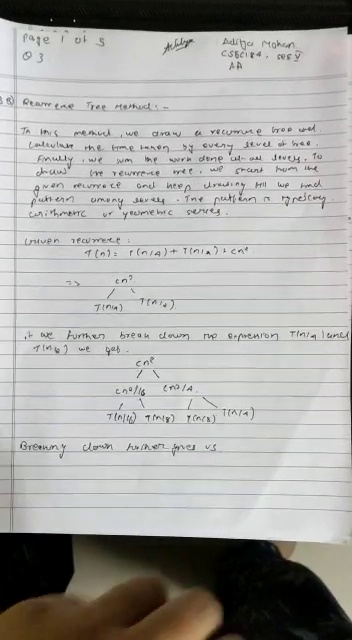 Page 1 of 5
Aditya Mohan
Q3
CSE, SEC V
AA
Recurrence Tree Method: -
In this method, we draw a recurrence tree and
calculate the time taken by every level of tree.
Finally, we sum the work done at all levels. To
draw the recurrence tree, we start from the
given recurrence and keep drawing till we find
pattern among levels. The pattern is typically
arithmetic or geometric series.
Given recurrence:
T(n) = T(n/4) + T(n/2) + cn²
=> cn²
/ \
T(n/4) T(n/2)
if we further break down the expression T(n/4) and
T(n/2) we get.
cn²
/ \
cn²/16 cn²/4
/ \ / \
T(n/16) T(n/8) T(n/8) T(n/4)
Breaking down further gives us